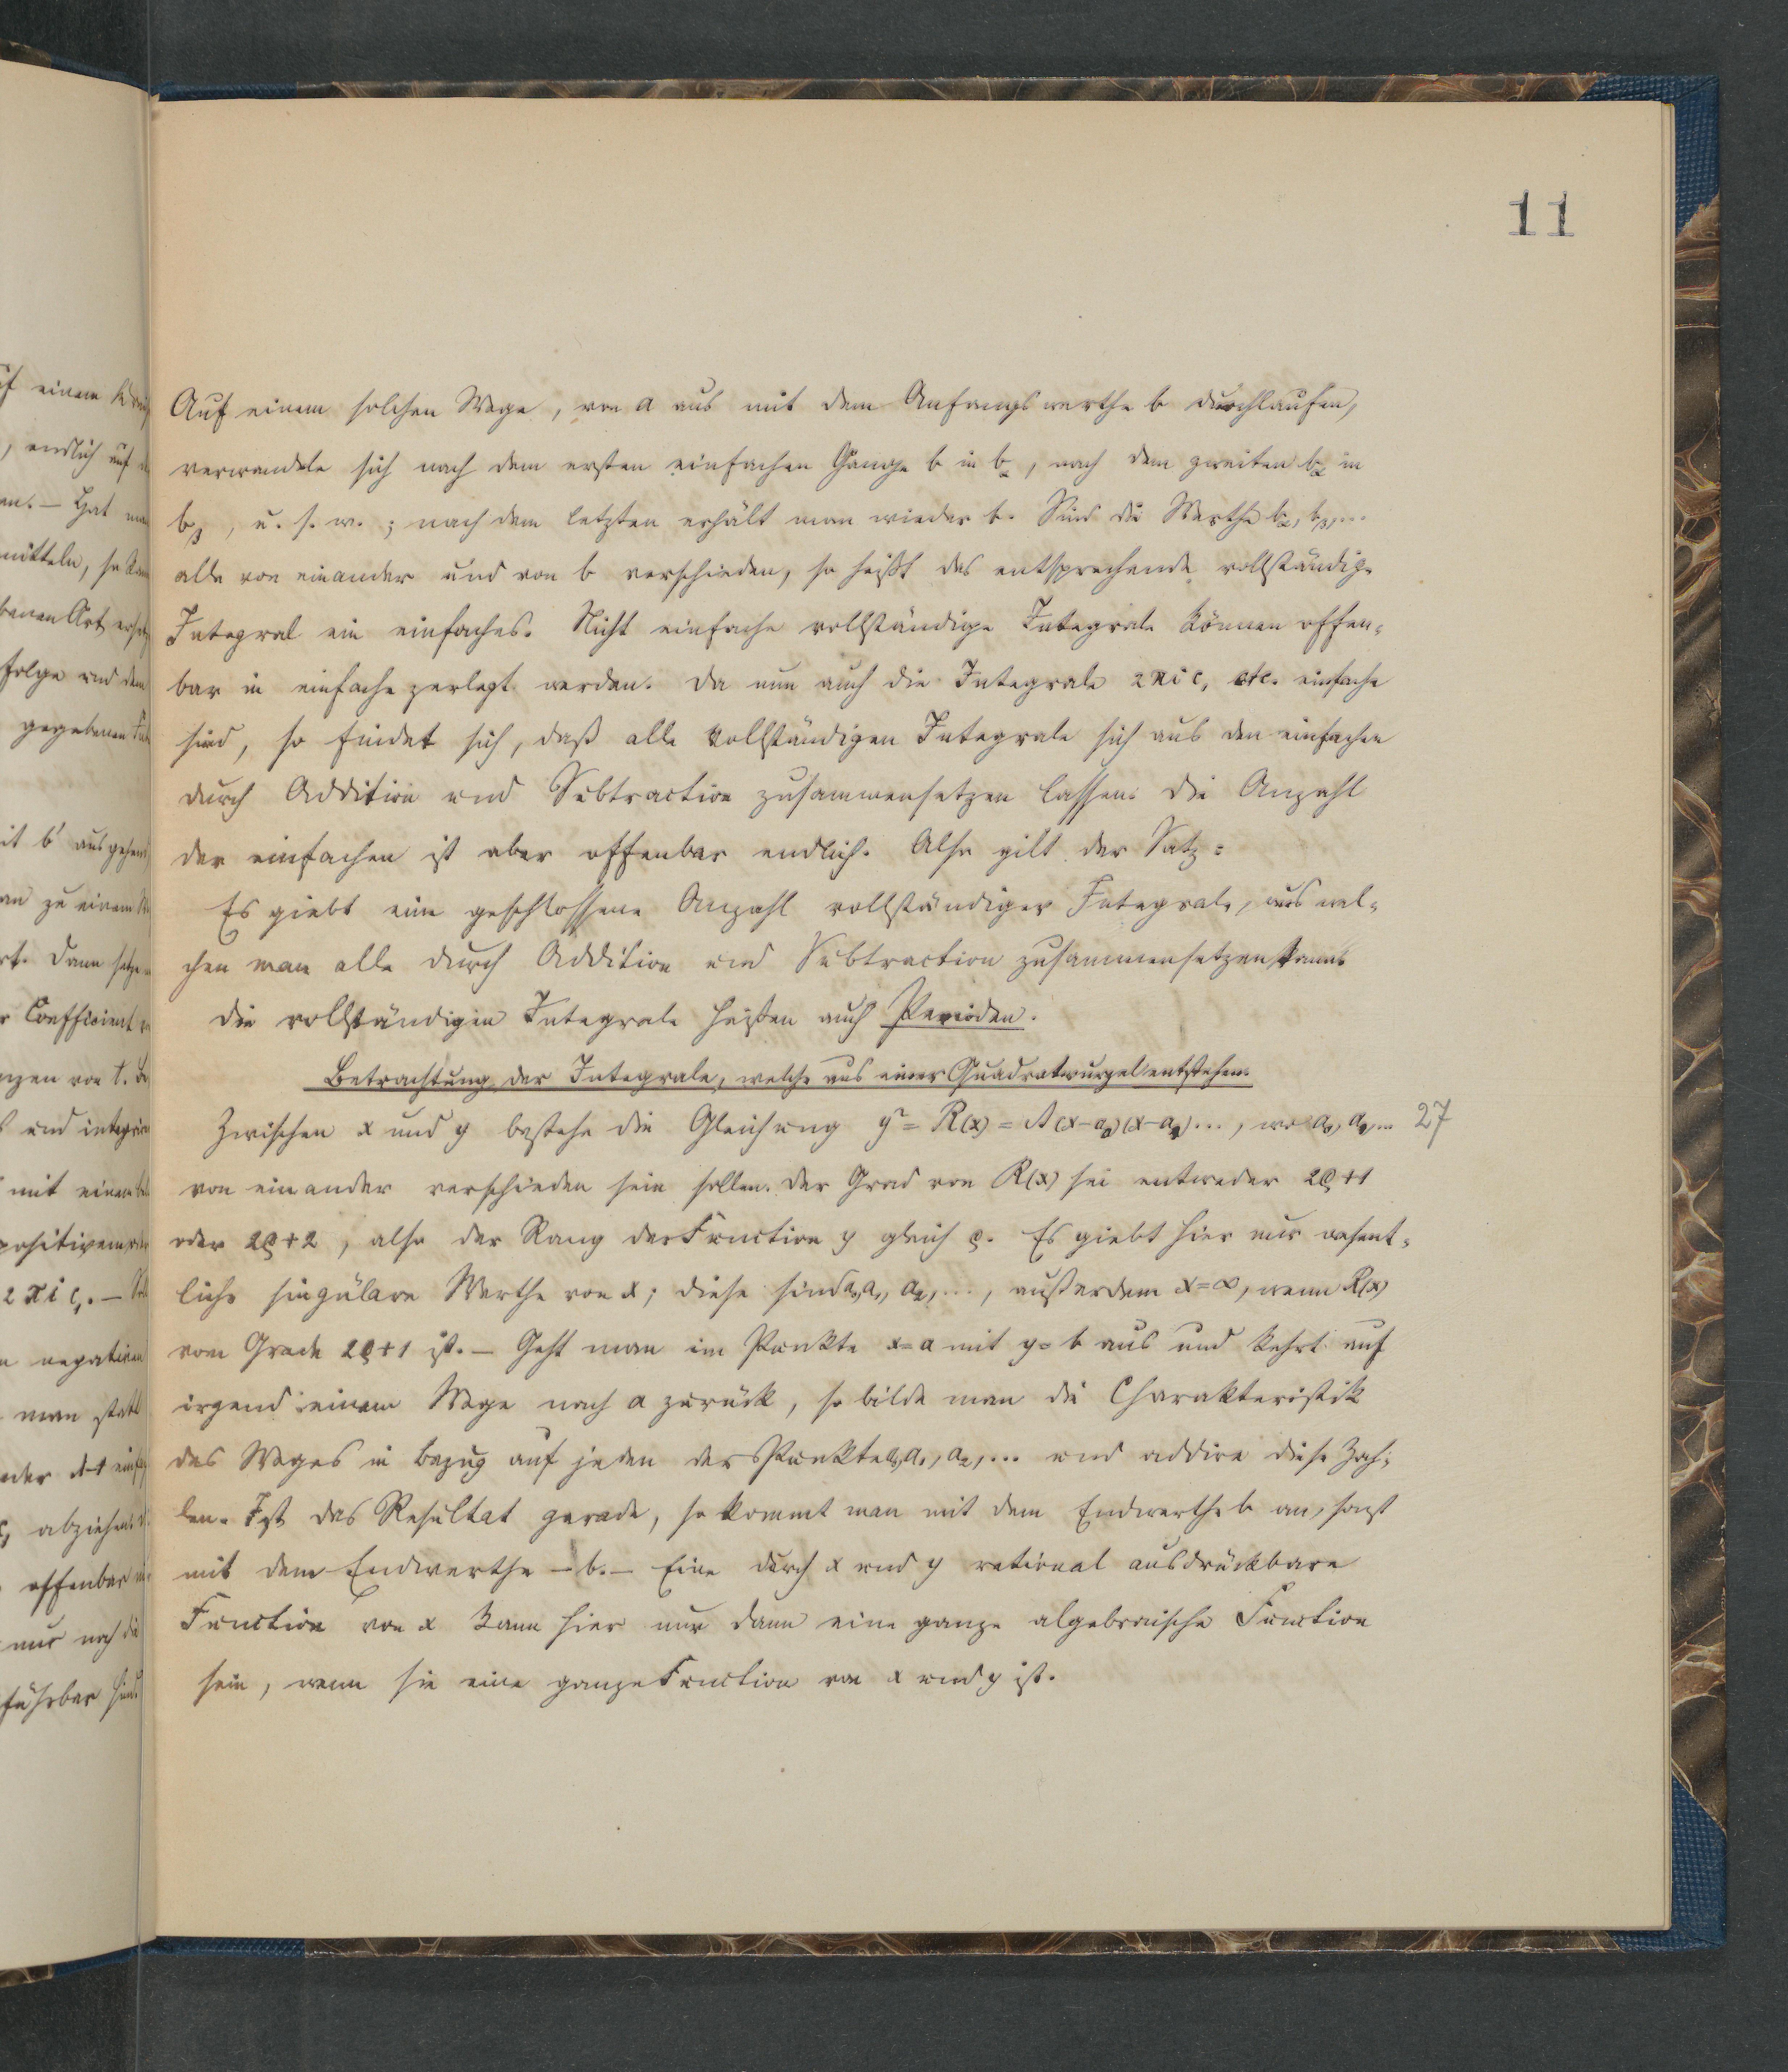 11
Auf einem solchen Wege, von a aus mit dem Anfangswerthe b durchlaufen,
verwandele sich nach dem ersten einfachen Gange b in b_α, nach dem zweiten b_α in
b_β, u. s. w.; nach dem letzten erhält man wieder b. Sind die Werthe b_α, b_β, ...
alle von einander und von b verschieden, so heißt das entsprechende vollständige
Integral ein einfaches. Nicht einfache vollständige Integrale können offen-
bar in einfache zerlegt werden. Da nun auch die Integrale 2πi c, etc. einfache
sind, so findet sich, daß alle vollständigen Integrale sich aus den einfachen
durch Addition und Subtraction zusammensetzen lassen. Die Anzahl
der einfachen ist aber offenbar endlich. Also gilt der Satz:
Es giebt eine geschlossene Anzahl vollständiger Integrale, aus wel-
chen man alle durch Addition und Subtraction zusammensetzen kann.
Die vollständigen Integrale heißen auch Perioden.
Betrachtung der Integrale, welche aus einer Quadratwurzel entstehen.
Zwischen x und y bestehe die Gleichung y² = R(x) = A(x-a₀)(x-a₁)..., wo a₀, a₁, ... 27
von einander verschieden sein sollen. Der Grad von R(x) sei entweder 2ϱ+1
oder 2ϱ+2, also der Rang der Function y gleich ϱ. Es giebt hier nur wesent-
liche singuläre Werthe von x; diese sind a₀, a₁, a₂, ..., außerdem x=∞, wenn R(x)
vom Grade 2ϱ+1 ist. – Geht man im Punkte x=a mit y=b aus und kehrt auf
irgend einem Wege nach a zurück, so bilde man die Charakteristik
des Weges in Bezug auf jeden der Punkte a₀, a₁, a₂, ... und addire diese Zah-
len. Ist das Resultat gerade, so kommt man mit dem Endwerthe b an, sonst
mit dem Endwerthe – b. – Eine durch x und y rational ausdrückbare
Function von x kann hier nur dann eine ganze algebraische Function
sein, wenn sie eine ganze Function von x und y ist.